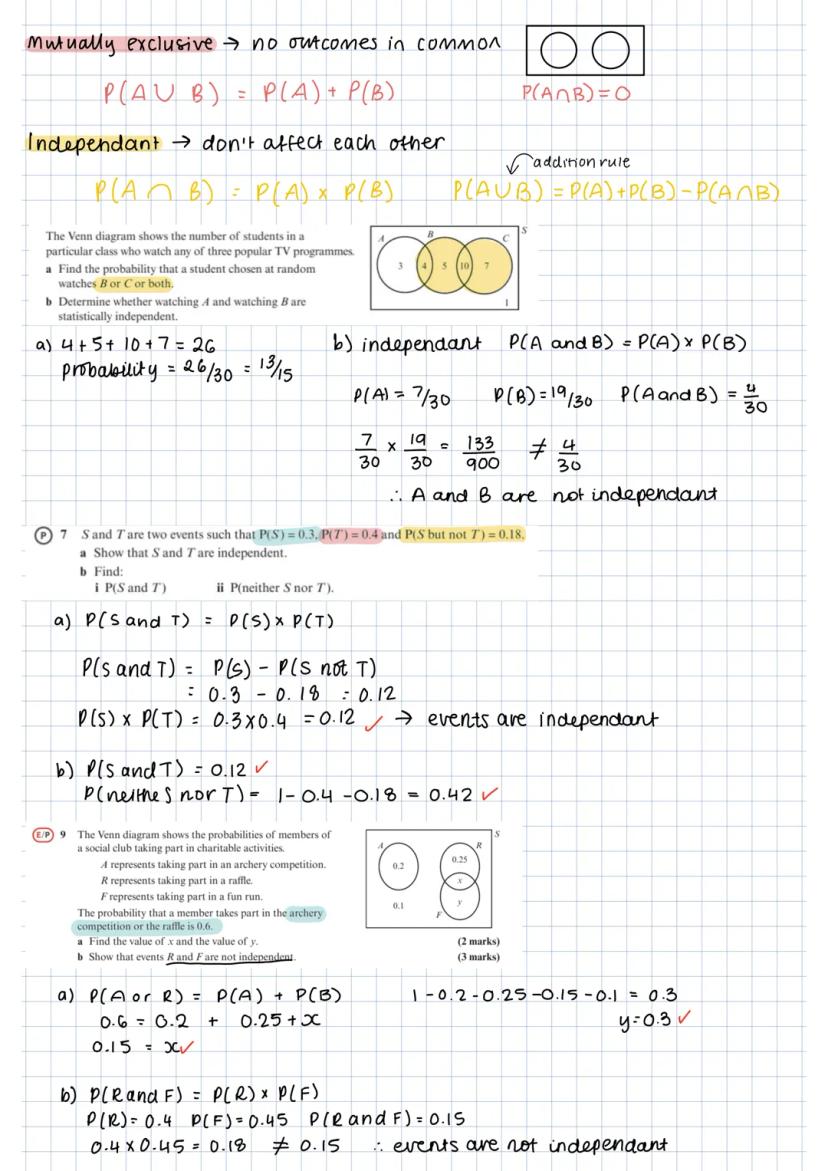 Mutually exclusive → no outcomes in common
P(A∪B) = P(A) + P(B)
P(A∩B)=0
Independant → don't affect each other
addition rule
P(A∩B) = P(A) × P(B)
P(A∪B) = P(A)+P(B)-P(A∩B)
The Venn diagram shows the number of students in a
particular class who watch any of three popular TV programmes.
a Find the probability that a student chosen at random
watches B or C or both.
b Determine whether watching A and watching B are
statistically independent.
A B C S
3 4 5 10 7
1
a) 4+5+10+7 = 26
probability = 26/30 = 13/15
b) independant P(A and B) = P(A) × P(B)
P(A) = 7/30 P(B) = 19/30 P(A and B) = 4/30
7/30 × 19/30 = 133/900 ≠ 4/30
∴ A and B are not independant
P 7 S and T are two events such that P(S) = 0.3, P(T) = 0.4 and P(S but not T) = 0.18.
a Show that S and T are independent.
b Find:
i P(S and T) ii P(neither S nor T).
a) P(S and T) = P(S) × P(T)
P(S and T) = P(S) - P(S not T)
= 0.3 - 0.18 = 0.12
P(S) × P(T) = 0.3×0.4 = 0.12 ✓ → events are independant
b) P(S and T) = 0.12 ✓
P(neithe S nor T) = 1-0.4-0.18 = 0.42 ✓
E/P 9 The Venn diagram shows the probabilities of members of
a social club taking part in charitable activities.
A represents taking part in an archery competition.
R represents taking part in a raffle.
F represents taking part in a fun run.
The probability that a member takes part in the archery
competition or the raffle is 0.6.
a Find the value of x and the value of y. (2 marks)
b Show that events R and F are not independent. (3 marks)
S
A R
0.2 0.25
x
0.1 y
F
a) P(A or R) = P(A) + P(B)
0.6 = 0.2 + 0.25+x
0.15 = x✓
1-0.2-0.25-0.15-0.1 = 0.3
y=0.3 ✓
b) P(R and F) = P(R) × P(F)
P(R) = 0.4 P(F) = 0.45 P(R and F) = 0.15
0.4 × 0.45 = 0.18 ≠ 0.15 ∴ events are not independant